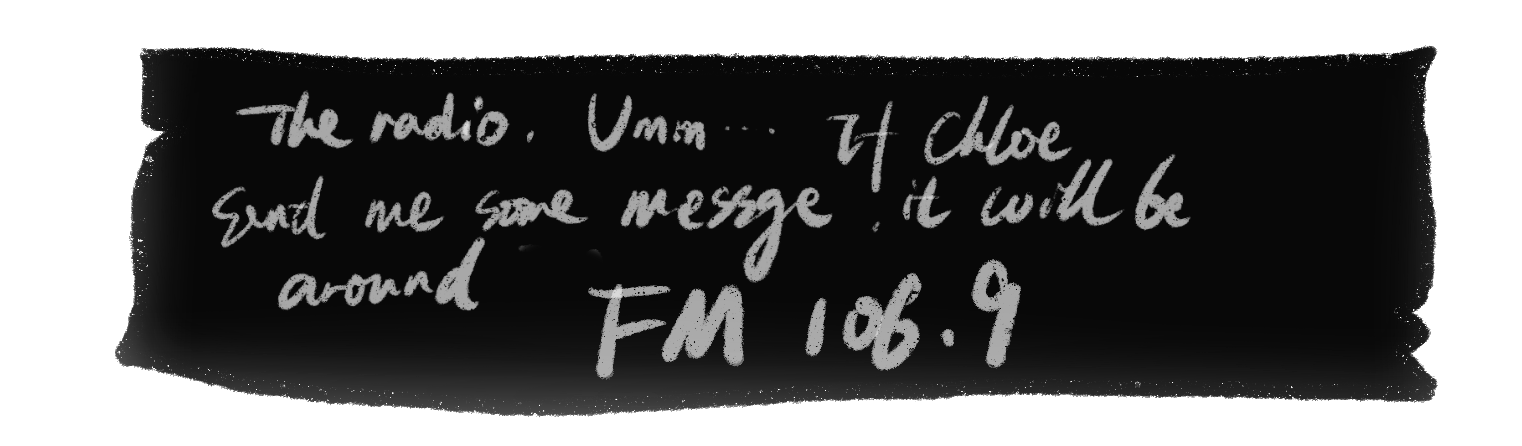 The radio. Umm... If Chloe
Send me some messge, it will be
around FM 106.9